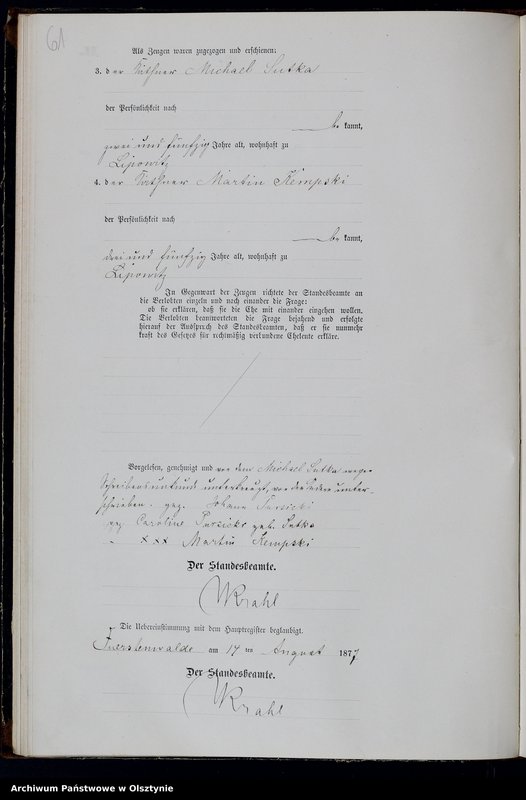 61
Als Zeugen waren zugezogen und erschienen:
3. der Wirthner Michael Sutka
der Persönlichkeit nach
be kannt,
zwei und fünfzig Jahre alt, wohnhaft zu
Lipowitz
4. der Wirthner Martin Kempski
der Persönlichkeit nach
be kannt,
drei und fünfzig Jahre alt, wohnhaft zu
Lipowitz
In Gegenwart der Zeugen richtete der Standesbeamte an
die Verlobten einzeln und nach einander die Frage:
ob sie erklären, daß sie die Ehe mit einander eingehen wollen.
Die Verlobten beantworteten die Frage bejahend und erfolgte
hierauf der Ausspruch des Standesbeamten, daß er sie nunmehr
kraft des Gesetzes für rechtmäßig verbundene Eheleute erkläre.
Vorgelesen, genehmigt und von dem Michael Sutka wegen
Schreibensunkund unterkreuzt, von den Andern unter-
schrieben. gez. Johann
gez. Caroline geb. Sutka
" xxx Martin Kempski
Der Standesbeamte.
Krahl
Die Uebereinstimmung mit dem Hauptregister beglaubigt.
Fuerstenwalde am 14 ten August 1877
Der Standesbeamte.
Krahl
Archiwum Państwowe w Olsztynie